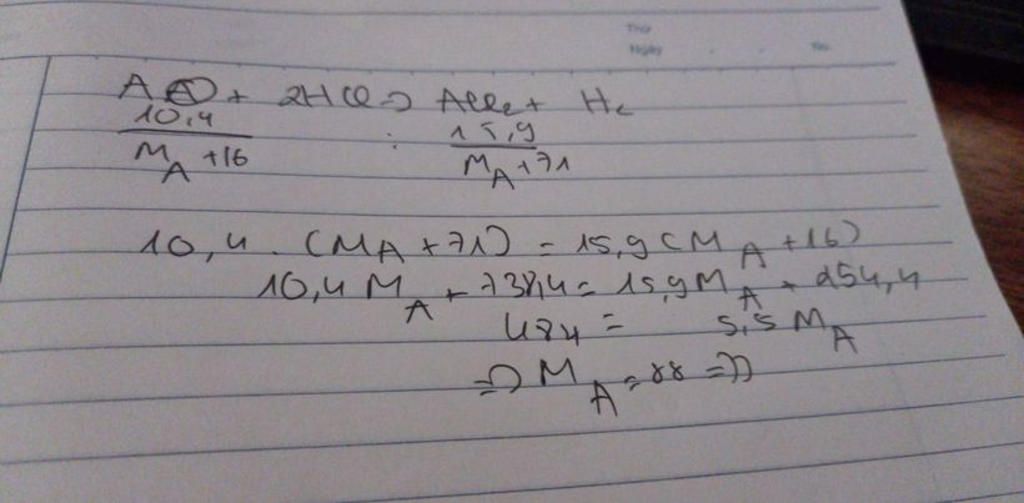 Thứ
Ngày . . No.
A O + 2HCl => ACl2 + H2
10,4 / MA +16 : 15,9 / MA +71
10,4 . (MA +71) = 15,9 (MA +16)
10,4 MA + 738,4 = 15,9 MA + 254,4
484 = 5,5 MA
=> MA = 88 =))